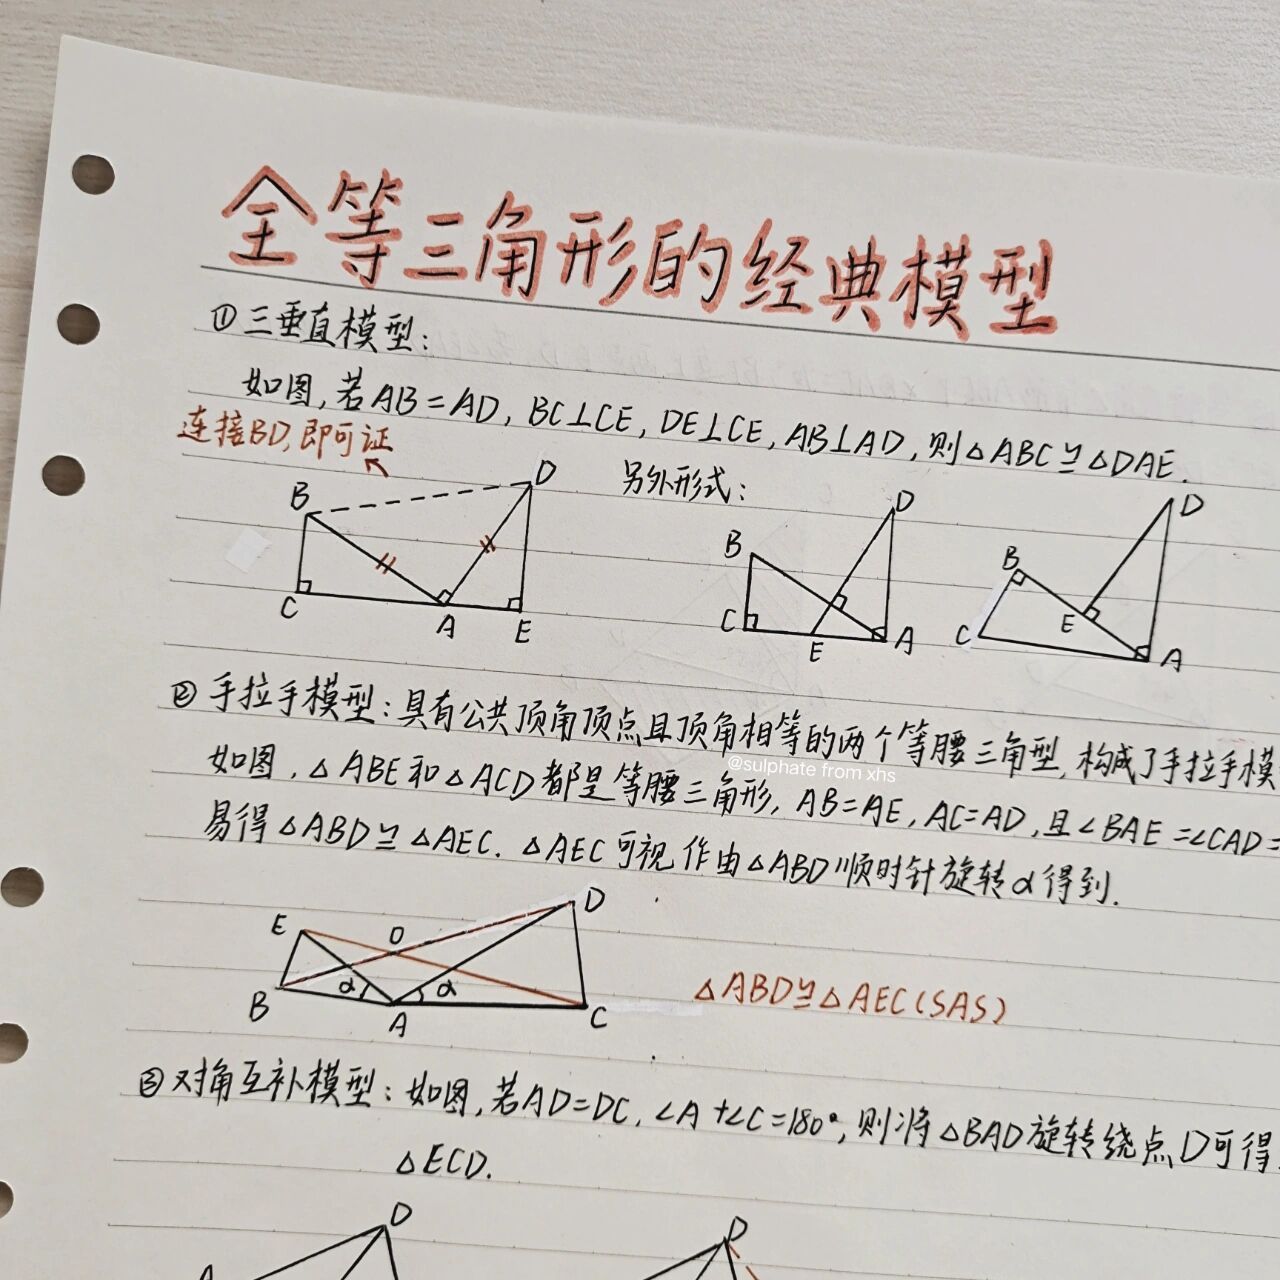 全等三角形的经典模型
①三垂直模型：
如图,若AB=AD, BC⊥CE, DE⊥CE, AB⊥AD,则△ABC≌△DAE.
连接BD,即可证
另外形式：
B D C A E
B D C E A
B D C E A
②手拉手模型：具有公共顶角顶点且顶角相等的两个等腰三角型,构成了手拉手模
@sulphate from xhs
如图, △ABE和△ACD都是等腰三角形, AB=AE, AC=AD,且∠BAE=∠CAD=
易得△ABD≌△AEC. △AEC可视作由△ABD顺时针旋转α得到.
E O D B α α A C
△ABD≌△AEC(SAS)
③对角互补模型：如图,若AD=DC, ∠A+∠C=180°,则将△BAD旋转绕点D可得
△ECD.
D D